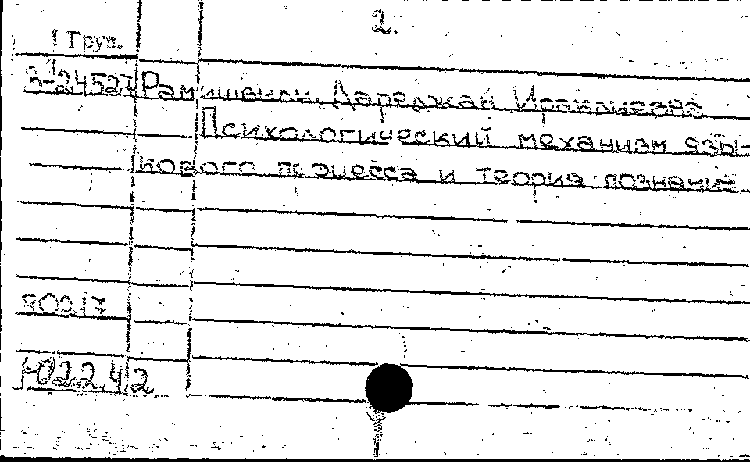 2.
1 Груз.
Рамишвили, Дареджан Ираклиевна
Психологический механизм язы-
кового процесса и теория познания
Ю22.42